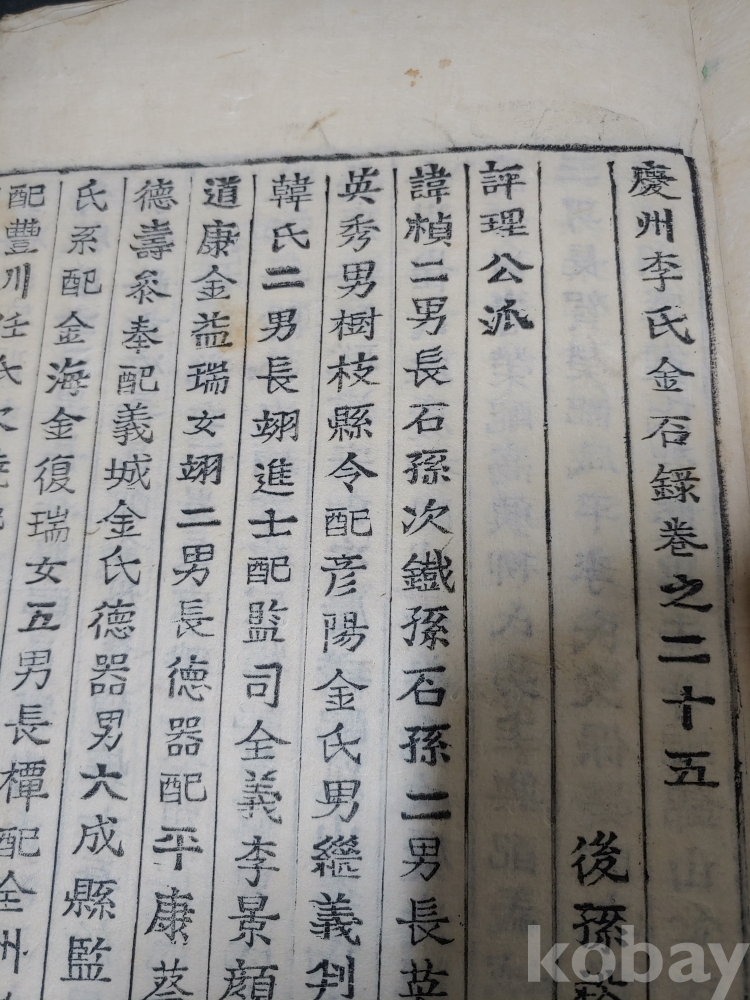 慶州李氏金石錄卷之二十五
後孫
評理公派
諱楨二男長石孫次鐵孫石孫二男長英
英秀男樹枝縣令配彦陽金氏男繼義判
韓氏二男長翊進士配監司全義李景顔
道康金益瑞女翊二男長德器配平康蔡
德壽叅奉配義城金氏德器男大成縣監
氏系配金海金復瑞女五男長橝配全州
配豊川任氏次
kobay